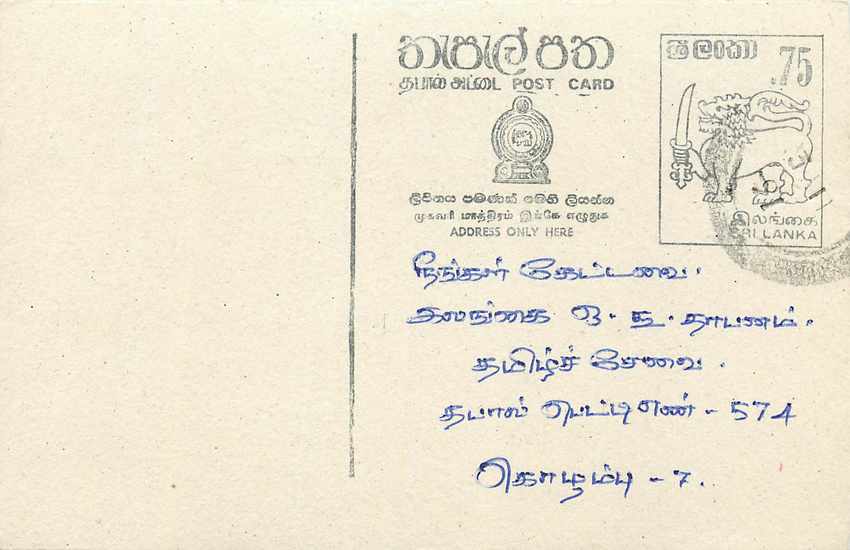 තැපැල් පත
தபால் அட்டை POST CARD
ලිපිනය පමණක් මෙහි ලියන්න
முகவரி மாத்திரம் இங்கே எழுதுக
ADDRESS ONLY HERE
ශ්‍රී ලංකා
.75
இலங்கை
SRI LANKA
நீங்கள் கேட்டவை.
இலங்கை ஒ. கூ. தாபனம்.
தமிழ்ச் சேவை.
தபால் பெட்டி எண் - 574
கொழும்பு - 7.